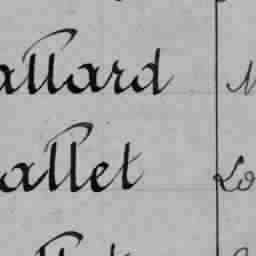 allard
allet Lo